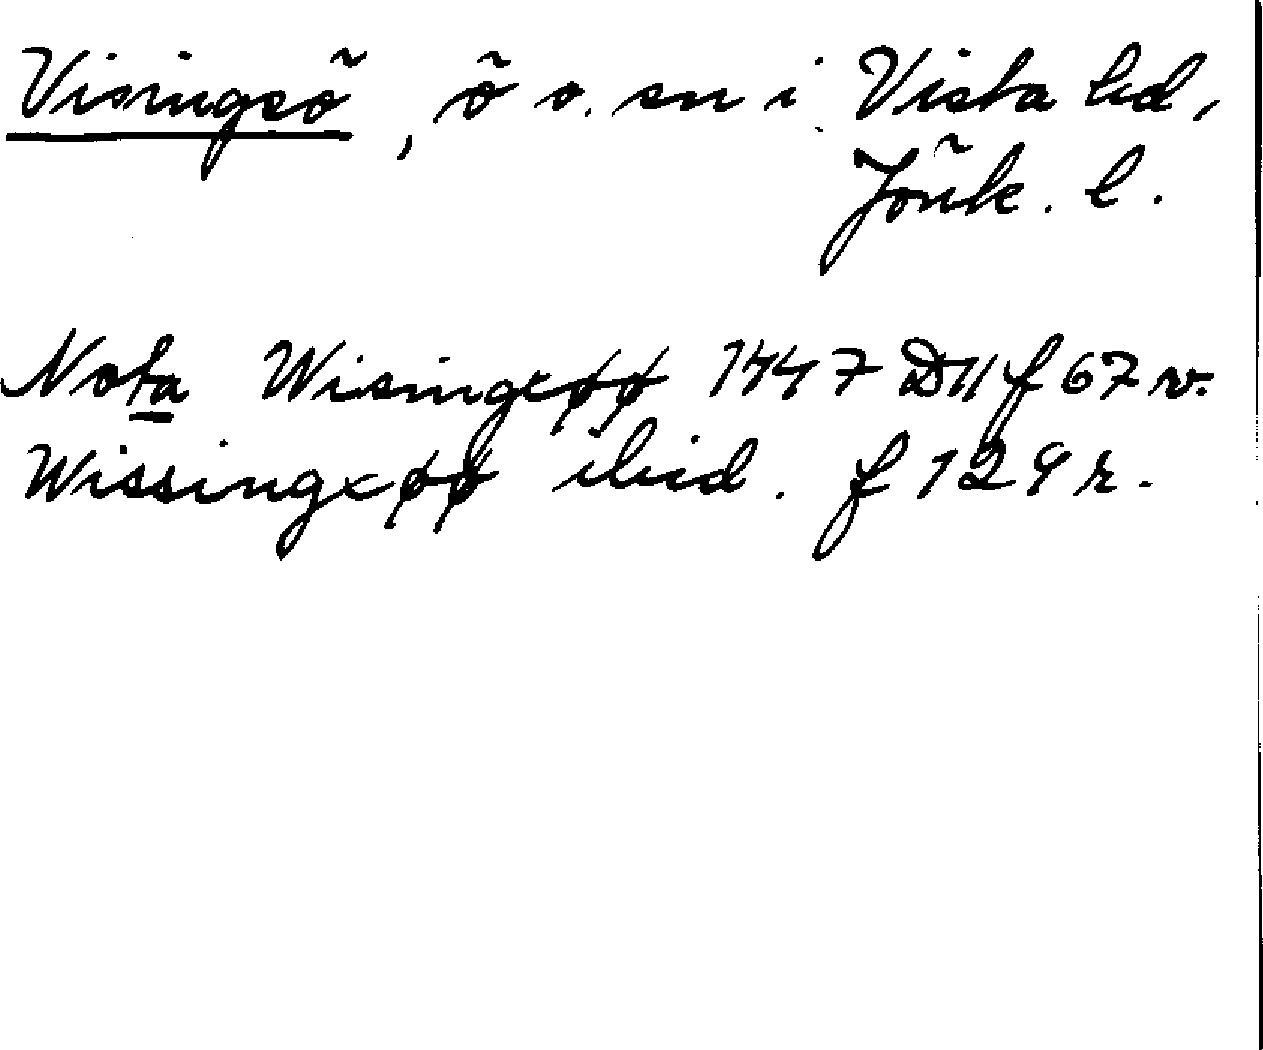 Visingsö, ö o. sn i Vista hd,
Jönk. l.
Nota Wisingxøø 1447 D11 f 67 v.
Wissingxøø ibid. f 129 r.